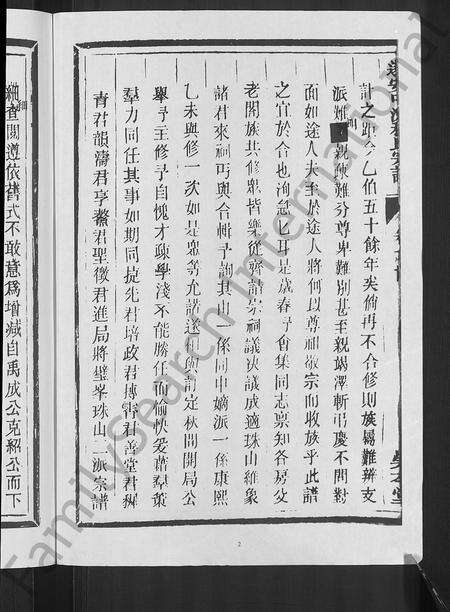 計之距今乙伯五十餘年矣倘再不合修則族屬難辨支
派難親疎難分尊卑難別甚至親竭澤斬弔慶不問對
面如途人夫至於途人將何以尊祖敬宗而收族乎此譜
之宜於合也洵急乙耳是歲春予會集同志禀知各房父
老閤族共修眾皆樂從齊詣宗祠議決議成適珠山維象
諸君來祠丐與合輯予詢其由一係同申嫡派一係康熙
乙未與修一次如是眾等允諾遂相與訂定秋間開局公
舉予主修予自愧才疎學淺不能勝任而愉快爰藉羣策
羣力同任其事如期同捷先君培政君搏霄君善堂君穉
青君韻濤君亨鰲君聖徵君進局將璧峯珠山二派宗譜
細查閱遵依舊式不敢意爲增減自禹成公克紹公而下
2
FamilySearch International